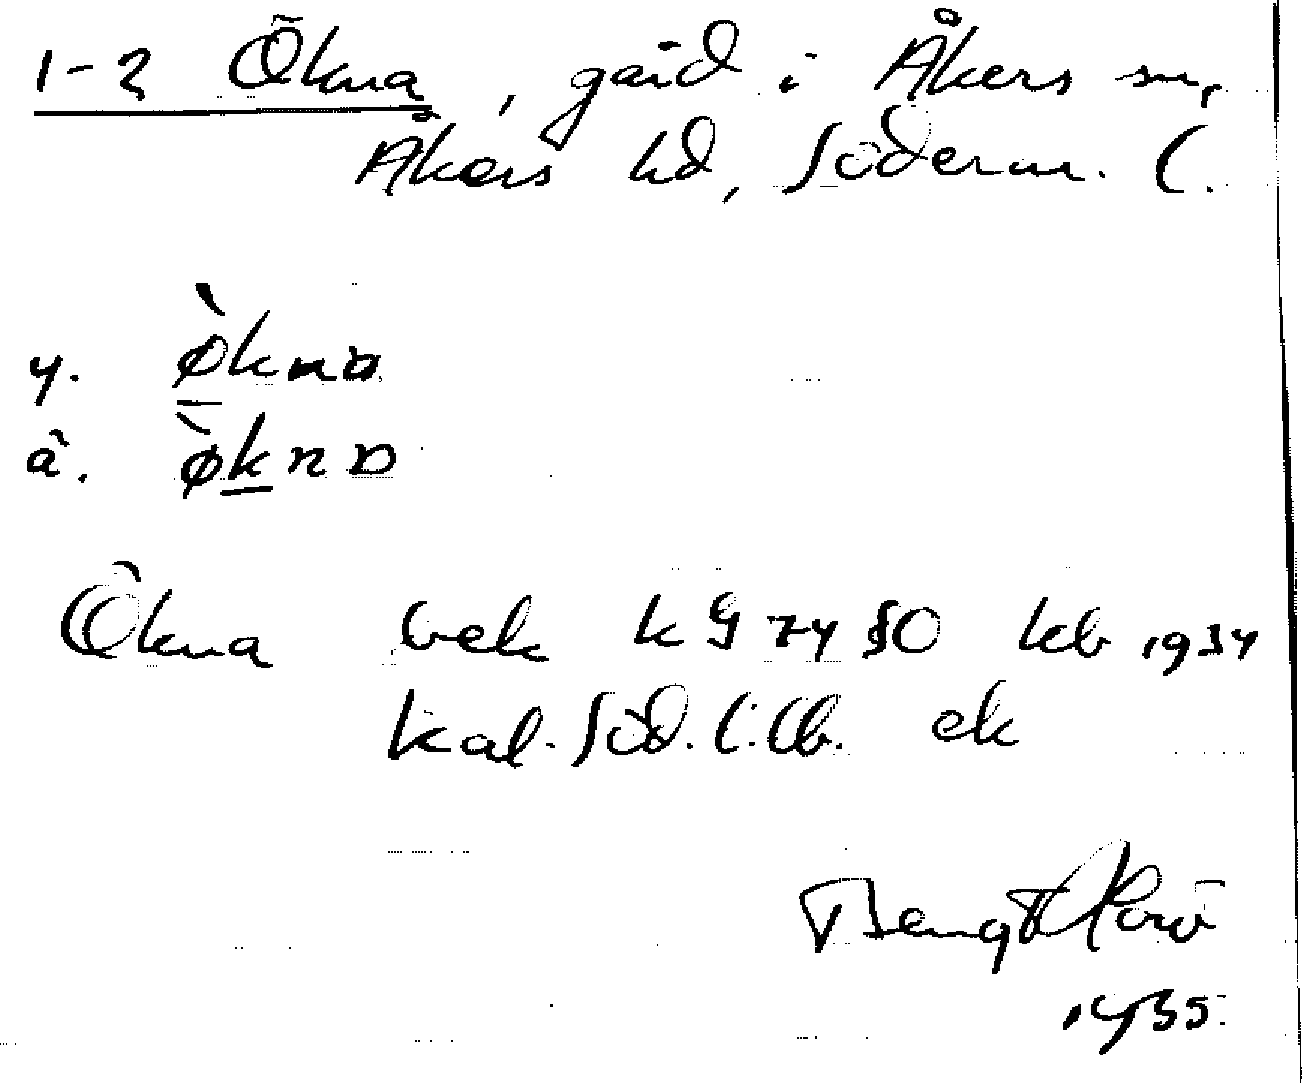 1-2 Ökna, gård i Åkers sn,
Åkers hd, Söderm. l.
y. ø̀kna
ä. ø̀kna
Ökna bek kg 74 50 kb 1934
kal. Söd. l. ek
Bengt
1935.